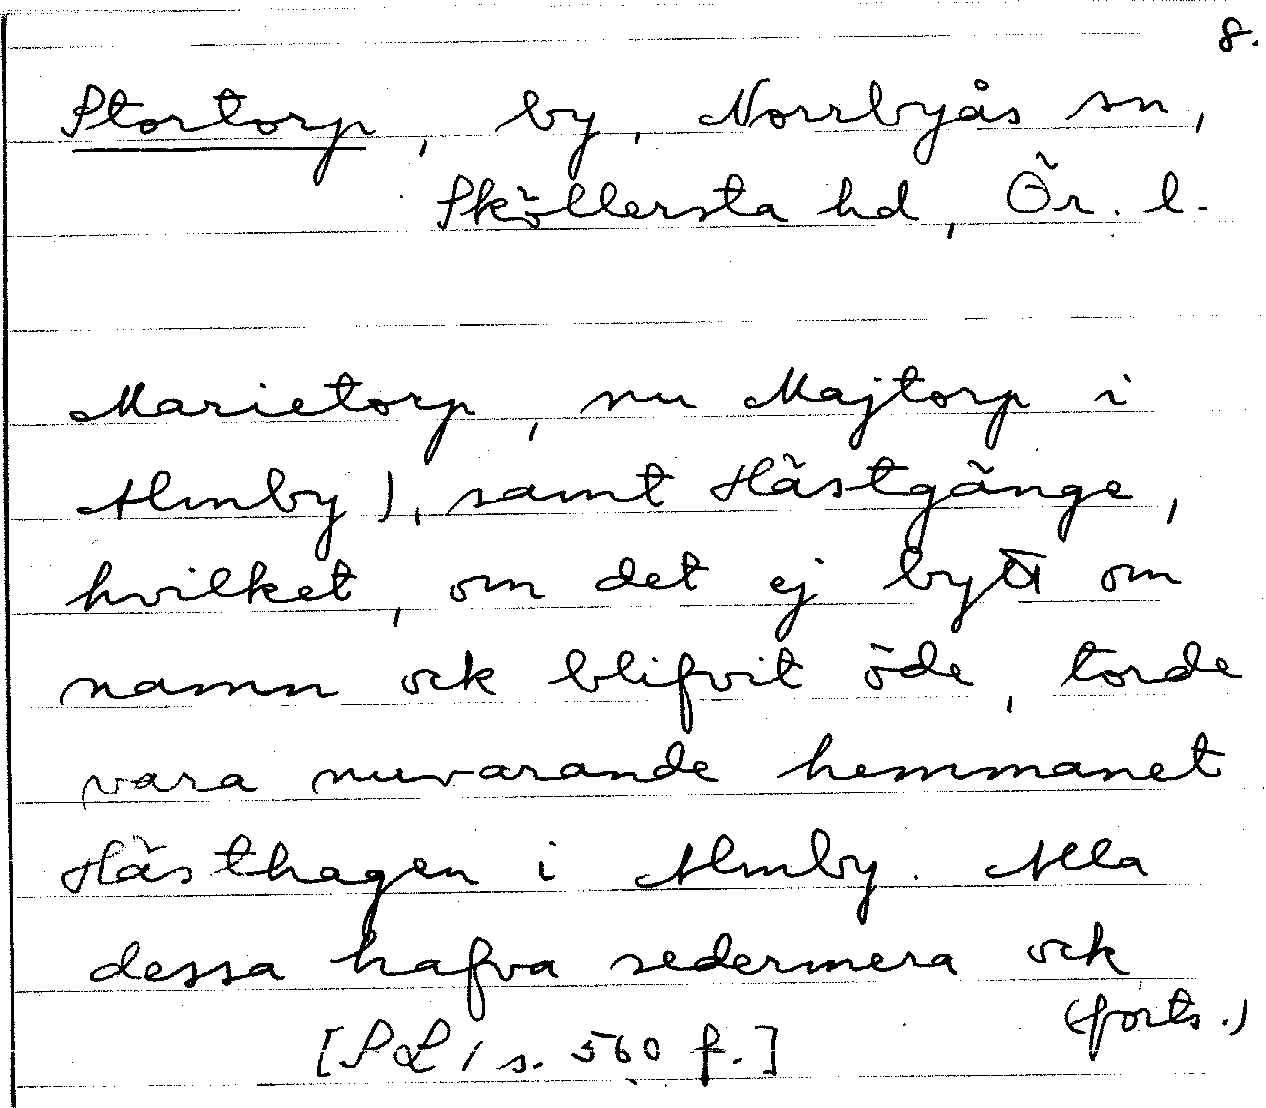 8.
Stortorp, by, Norrbyås sn,
Sköllersta hd, Ör. l.
Marietorp, nu Majtorp i
Almby), samt Hästgänge,
hvilket, om det ej bytt om
namn ock blifvit öde, torde
vara nuvarande hemmanet
Hästhagen i Almby. Alla
dessa hafva sedermera ock
(forts.)
[SL 1 s. 560 f.]